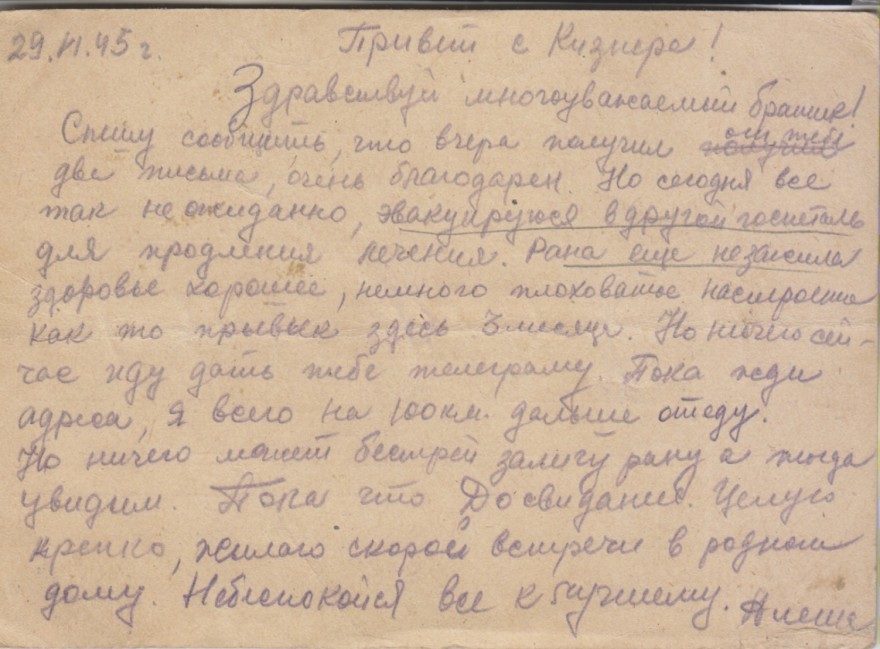 29.VI.45 г. Привет с Кизнера!
Здравствуй многоуважаемый братик!
Спешу сообщить, что вчера получил от тебя
две письма, очень благодарен. Но сегодня все
так неожиданно, эвакуируюся в другой госпиталь
для продления лечения. Рана еще незажила
здоровье хорошее, немного плоховатое настроение
как то привык здесь 3 месяца. Но ничего сей-
час иду дать тебе телеграму. Пока жди
адреса, я всего на 100 км. дальше отеду.
Но ничего может быстрей залечу рану а тогда
увидим. Пока что До свидание. Целую
крепко, желаю скорой встречи в родном
дому. Небеспокойся все к лучшему. Алеша